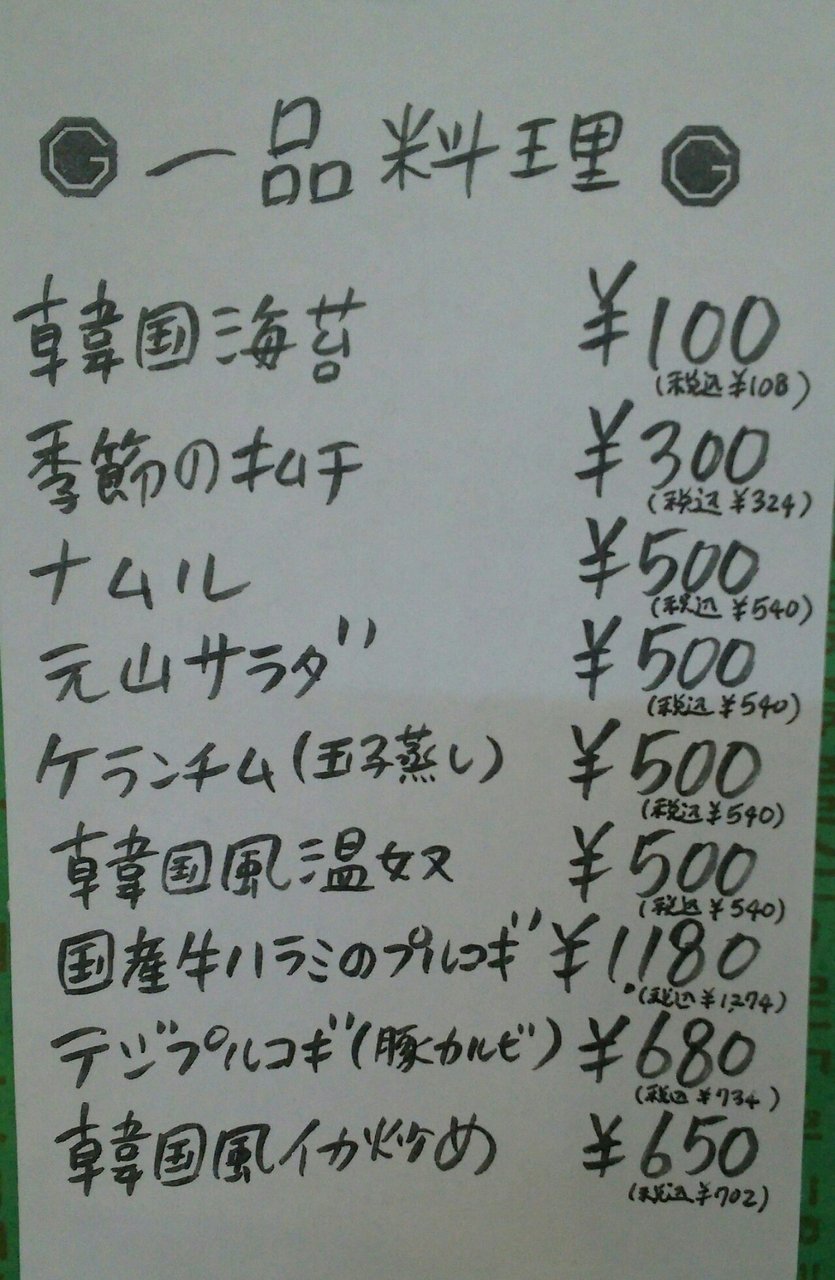 一品料理
韓国海苔 ¥100
(税込¥108)
季節のキムチ ¥300
(税込¥324)
ナムル ¥500
(税込¥540)
元山サラダ ¥500
(税込¥540)
ケランチム(玉子蒸し) ¥500
(税込¥540)
韓国風温奴 ¥500
(税込¥540)
国産牛ハラミのプルコギ ¥1,180
(税込¥1,274)
テジプルコギ(豚カルビ) ¥680
(税込¥734)
韓国風イカ炒め ¥650
(税込¥702)